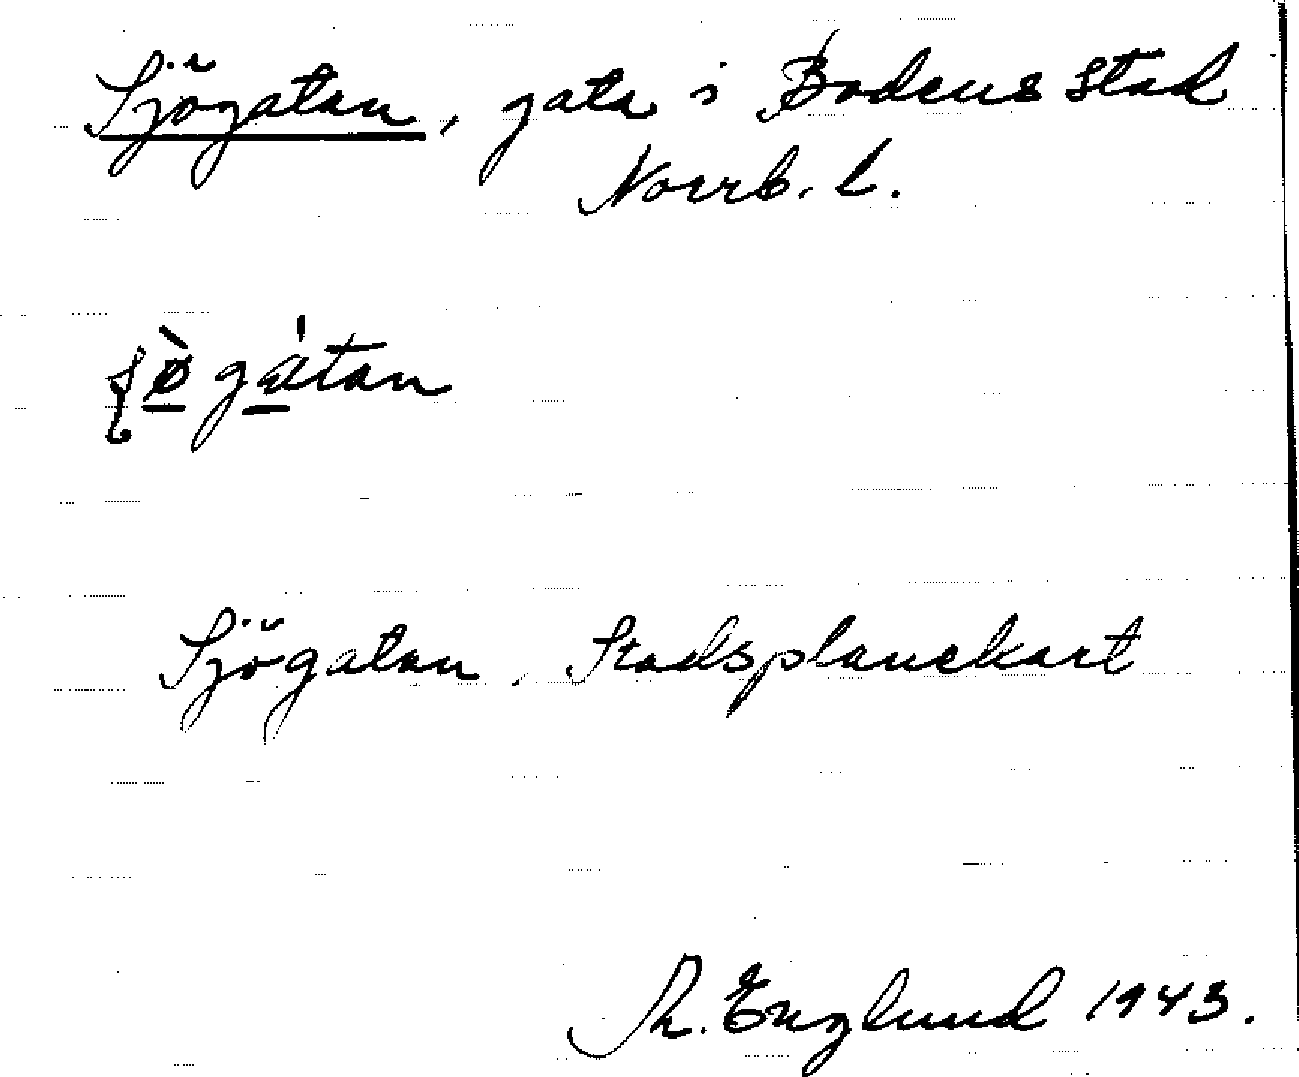 Sjögatan, gata i Bodens stad
Norrb. l.
ʃø̀gátan
Sjögatan, Stadsplanekart
R. Englund 1943.